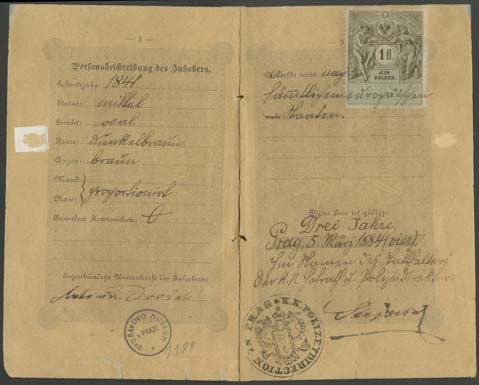 — 2 —
Personsbeschreibung des Inhabers.
Geburtsjahr: 1841.
Statur: mittel
Gesicht: oval
Haare: dunkelbraun
Augen: braun
Mund:
Nase:
proportionirt
Besondere Kennzeichen: 0
Eigenhändige Unterschrift des Inhabers:
Antonín Dvořák
DVOŘÁKOVO MUZEUM
PRAZE
3
1 fl
EIN
GULDEN
reist nach
sämmtlichen europäischen
Staaten.
Dieser Pass ist gültig:
Drei Jahre.
Prag, 5. März 1884 (vier)
Im Namen des Statthalters
Der K. K. Hofrath u. Polizei Direktor
K.K. POLIZEIDIRECTION IN PRAG